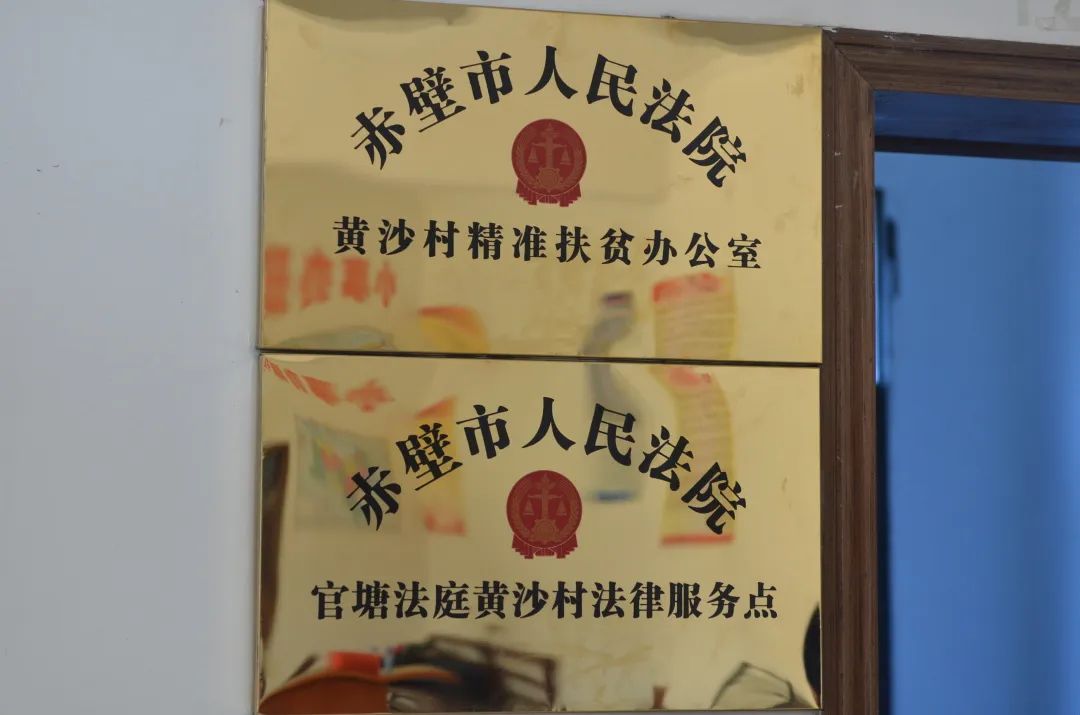 赤壁市人民法院
黄沙村精准扶贫办公室
赤壁市人民法院
官塘法庭黄沙村法律服务点